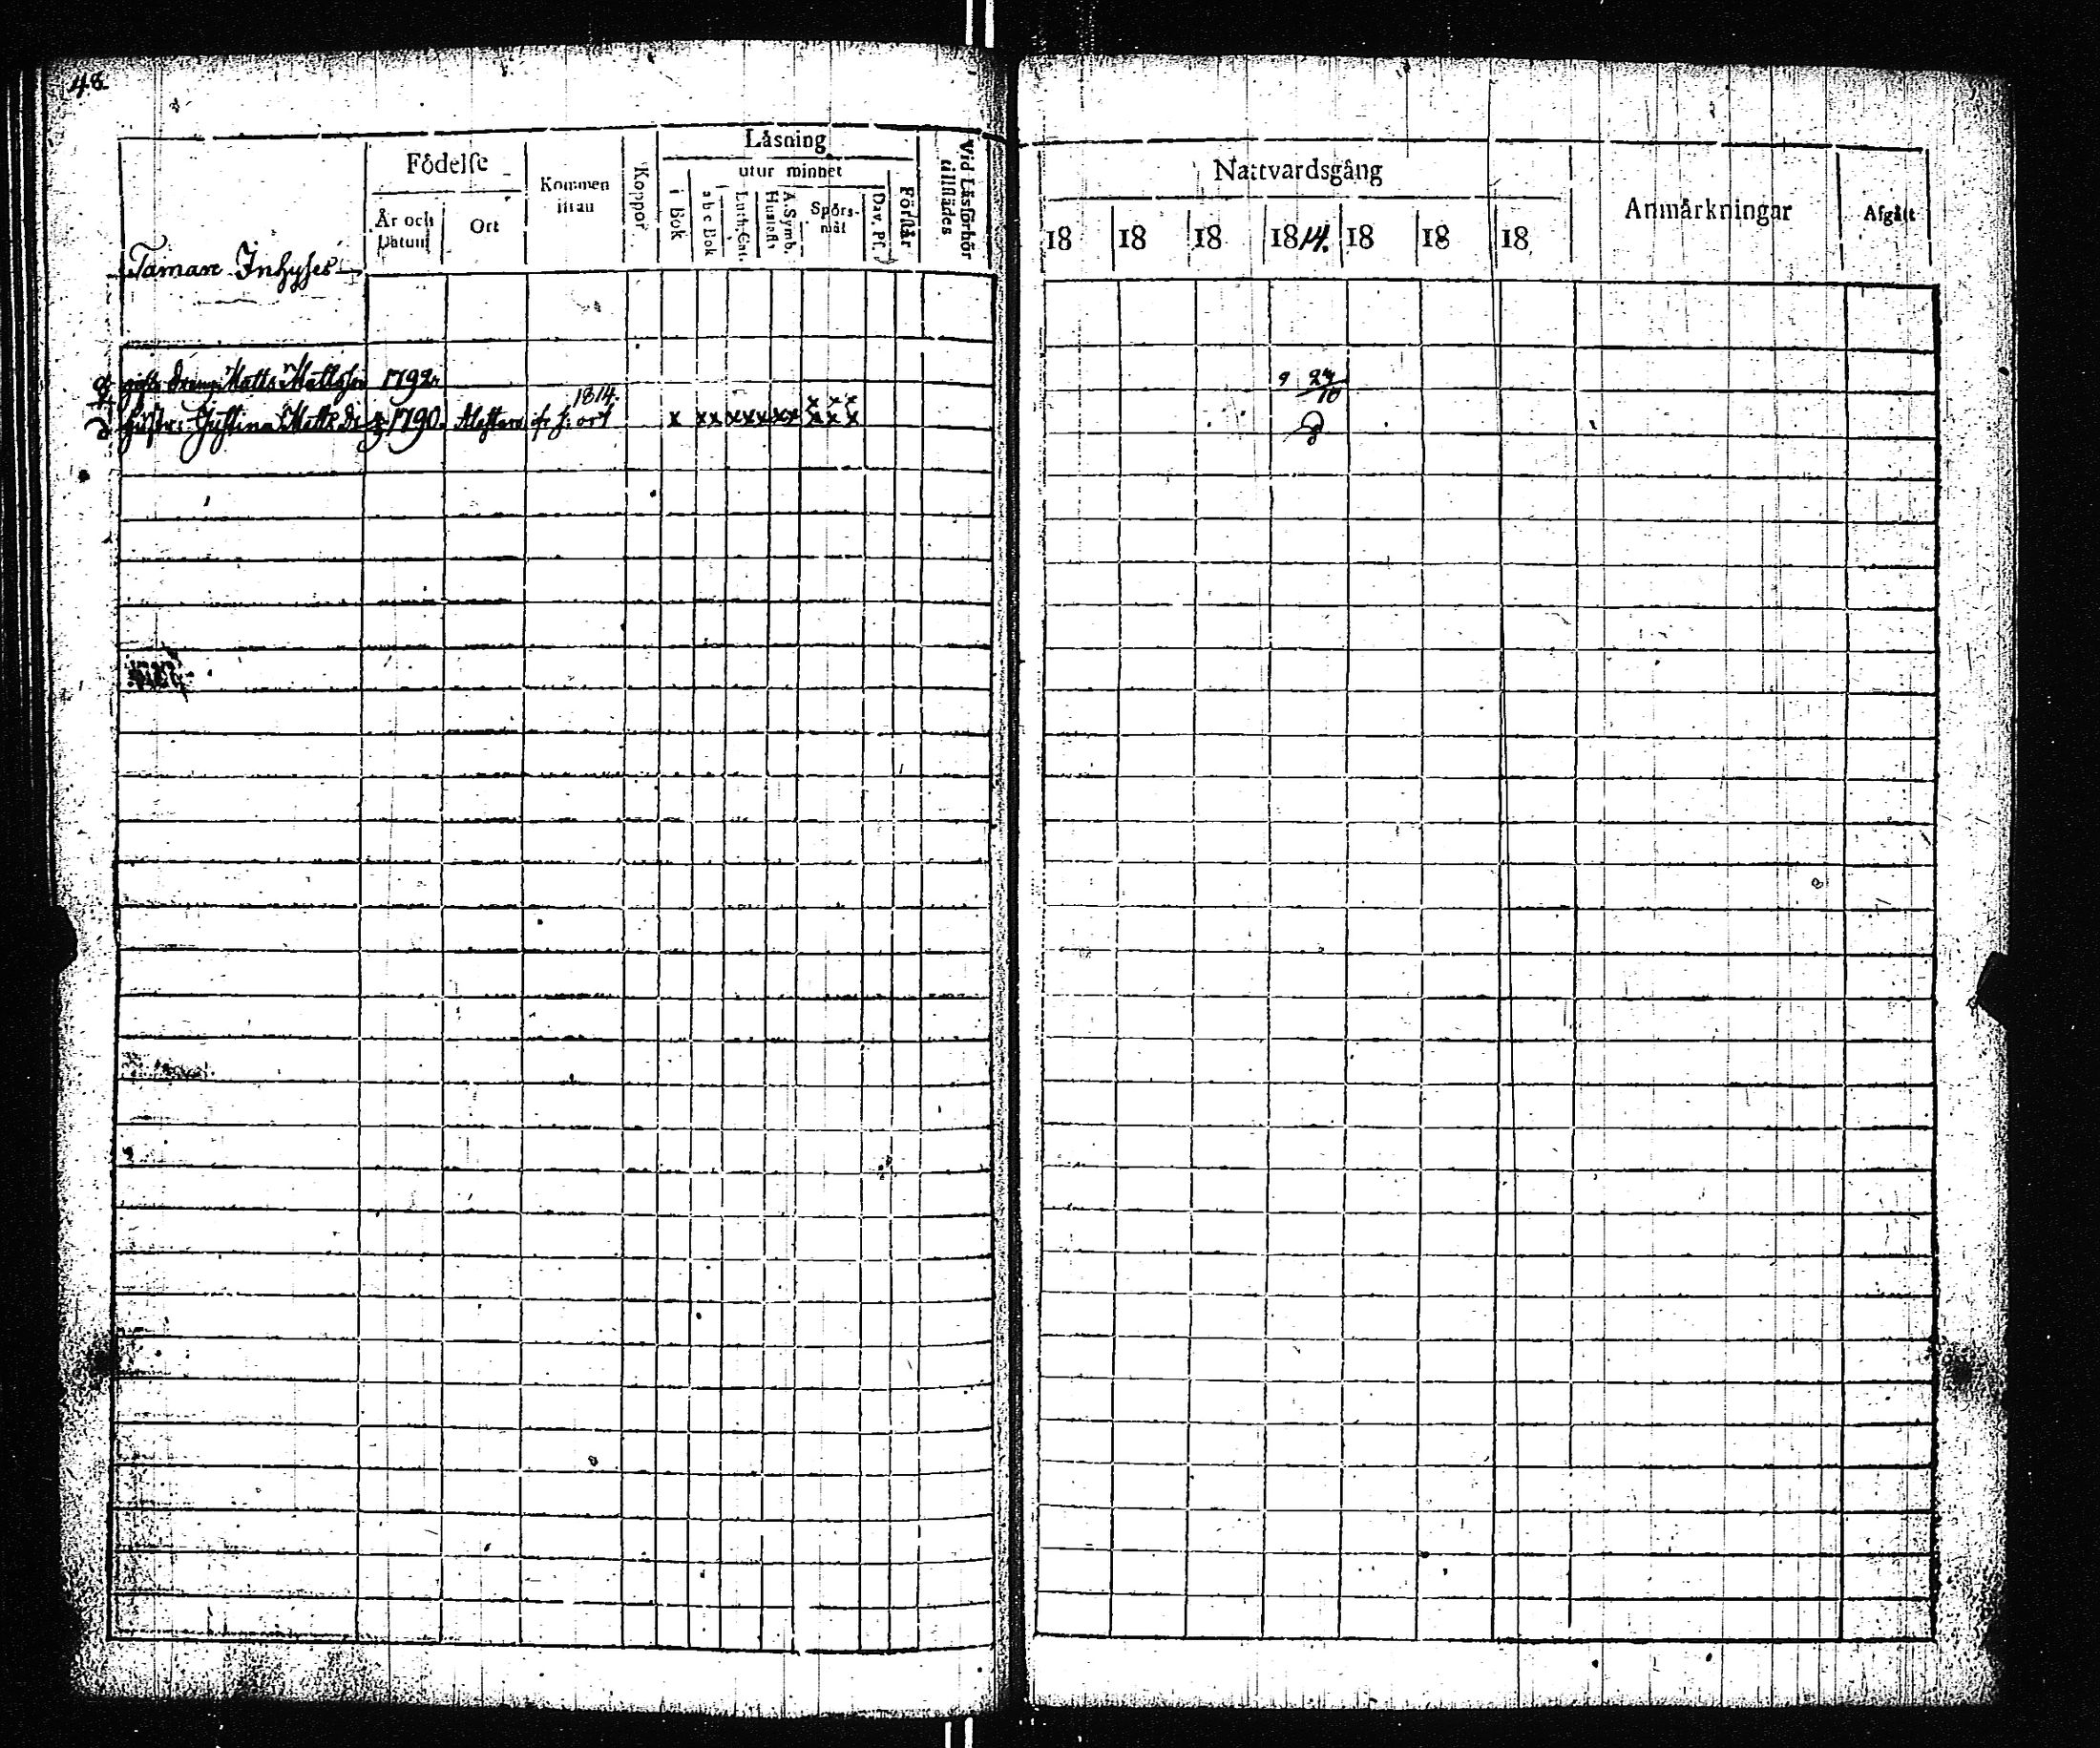 48
Läsning
Födelse
Kommen ifrån
Koppor
utur minnet
Vid Läsförhör tillstädes
År och Datum
Ort
i Bok
abc Bok
Luth. Cat.
A. Symb. Hustafl.
Spörsmål
Dav. Ps.
Förstår
Nattvardsgång
Anmärkningar
Afgått
18 18 18 1814. 18 18 18
Taman Inhyses
Matts Mattsson 1792. 9 24/10
1814.
hustr. Justina Matts dr 1790. fr f. ort x xx xxx xx xxx
xxx